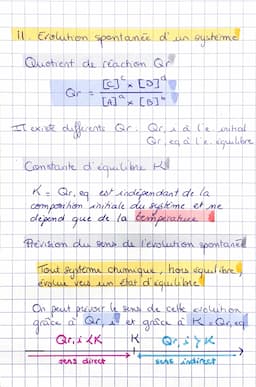 II. Evolution spontanée d'un système
Quotient de réaction Qr
Qr = [C]^c × [D]^d
[A]^a × [B]^b
Il existe différents Qr. Qr, i à l'e. initial
Qr, eq à l'e. équilibre
Constante d'équilibre K
K = Qr, eq est indépendant de la
composition initiale du système et ne
dépend que de la température
Prévision du sens de l'évolution spontanée
Tout système chimique, hors équilibre,
évolue vers un état d'équilibre
On peut prévoir le sens de cette évolution
grâce à Qr, i et grâce à K = Qr, eq
Qr, i < K K Qr, i > K
sens direct sens indirect